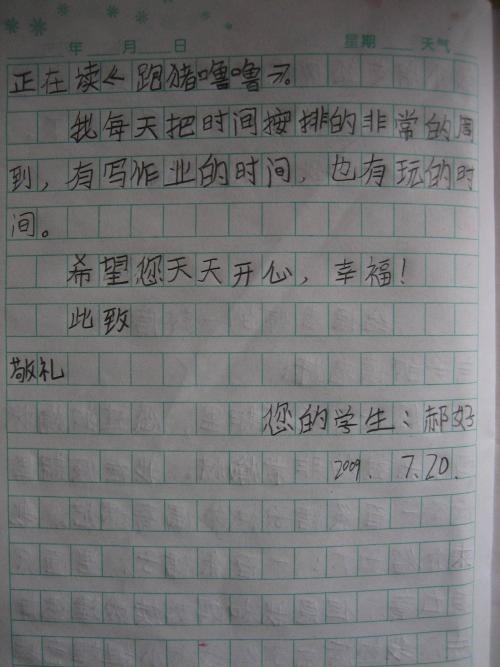 年 月 日 星期 天气
正在读《跑猪噜噜》。
我每天把时间按排的非常的周
到，有写作业的时间，也有玩的时
间。
希望您天天开心，幸福！
此致
敬礼
您的学生：郝好
2009. 7.20.